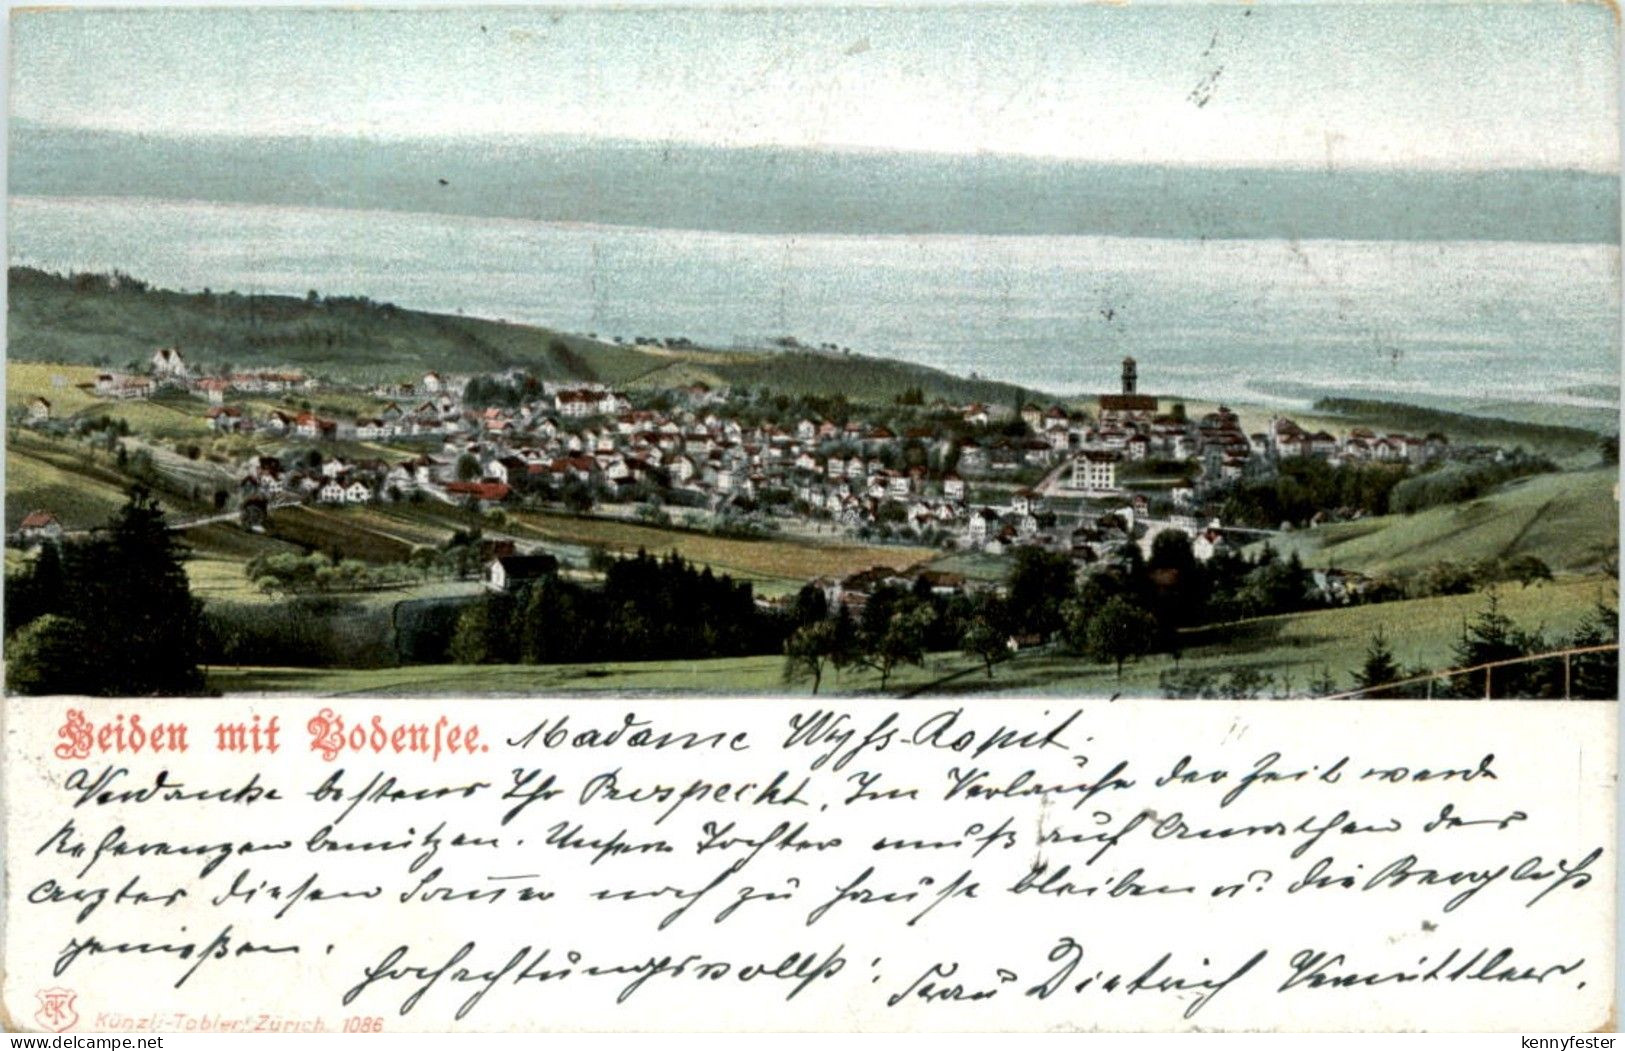 Heiden mit Bodensee. Madame Wyss-Rospit.
Verdanke bestens Ihr Prospeckt. Im Verlaufe der Zeit werde
Referenzen benützen. Unsere Tochter muß auf Anrathen des
Arztes diesen Sommer noch zu Hause bleiben u. die Bergluft
genießen. Hochachtungsvollst: Frau Dietrich
Künzli-Tobler, Zürich. 1086
www.delcampe.net kennyfester